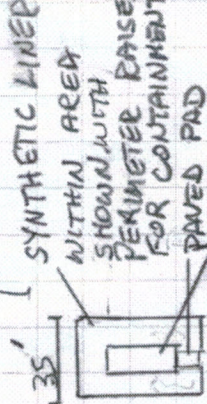 SYNTHETIC LINER
WITHIN AREA
SHOWN WITH
PERIMETER RAISE
FOR CONTAINMENT
PAVED PAD
35'